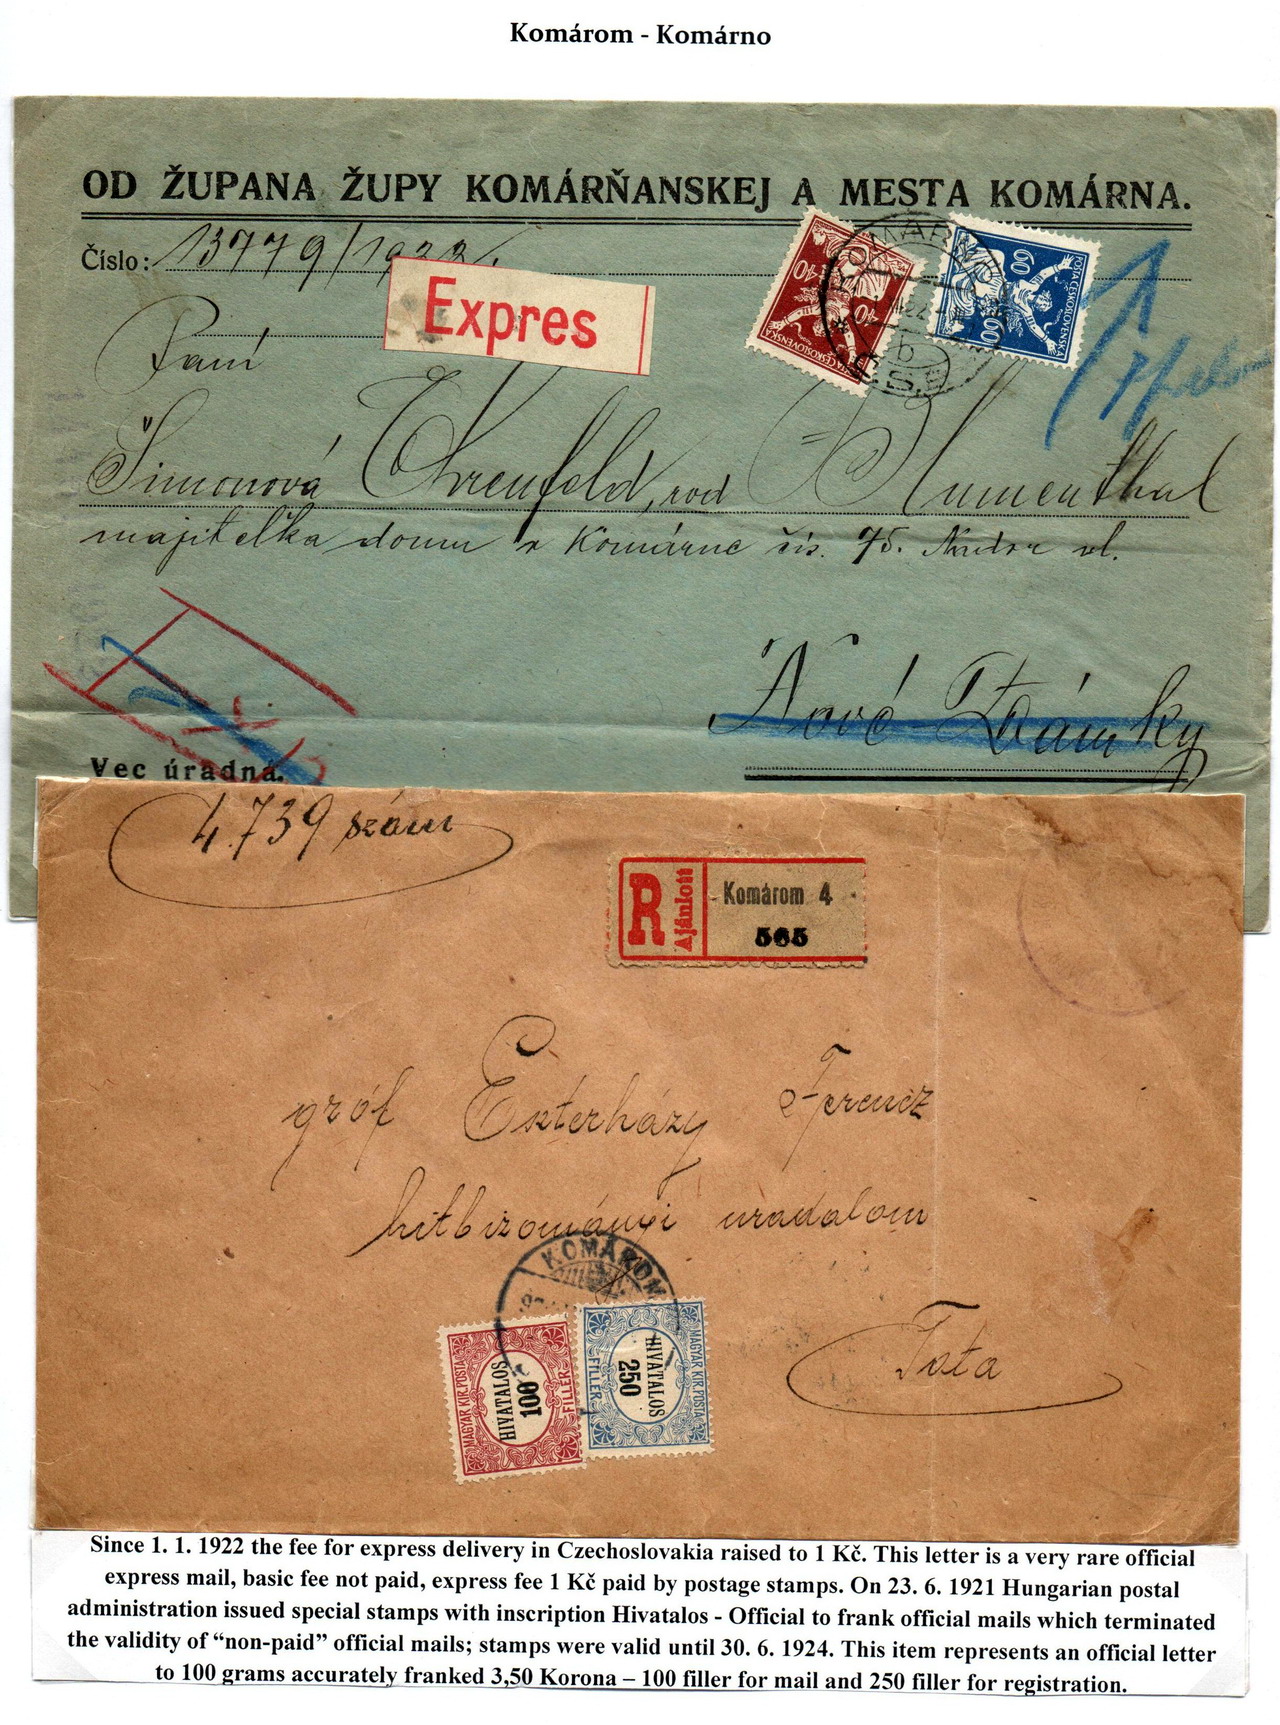 Komárom - Komárno
OD ŽUPANA ŽUPY KOMÁRŇANSKEJ A MESTA KOMÁRNA.
Číslo: 13779/1922.
Expres
40 40
POŠTA ČESKOSLOVENSKÁ
60 60
POŠTA ČESKOSLOVENSKÁ
KOMÁRNO
b
Paní
Šimonová Ehrenfeld, rod Blumenthal
majiteľka domu v Komárne čís. 75. Nádor ul.
Nové Zámky
Vec úradná.
4.739 szám
R Ajánlott
Komárom 4
565
gróf Eszterházy Ferencz
hitbizományi uradalom
Tata
KOMÁROM
MAGYAR KIR. POSTA
HIVATALOS
100
FILLÉR
MAGYAR KIR. POSTA
HIVATALOS
250
FILLÉR
Since 1. 1. 1922 the fee for express delivery in Czechoslovakia raised to 1 Kč. This letter is a very rare official
express mail, basic fee not paid, express fee 1 Kč paid by postage stamps. On 23. 6. 1921 Hungarian postal
administration issued special stamps with inscription Hivatalos - Official to frank official mails which terminated
the validity of “non-paid” official mails; stamps were valid until 30. 6. 1924. This item represents an official letter
to 100 grams accurately franked 3,50 Korona – 100 filler for mail and 250 filler for registration.